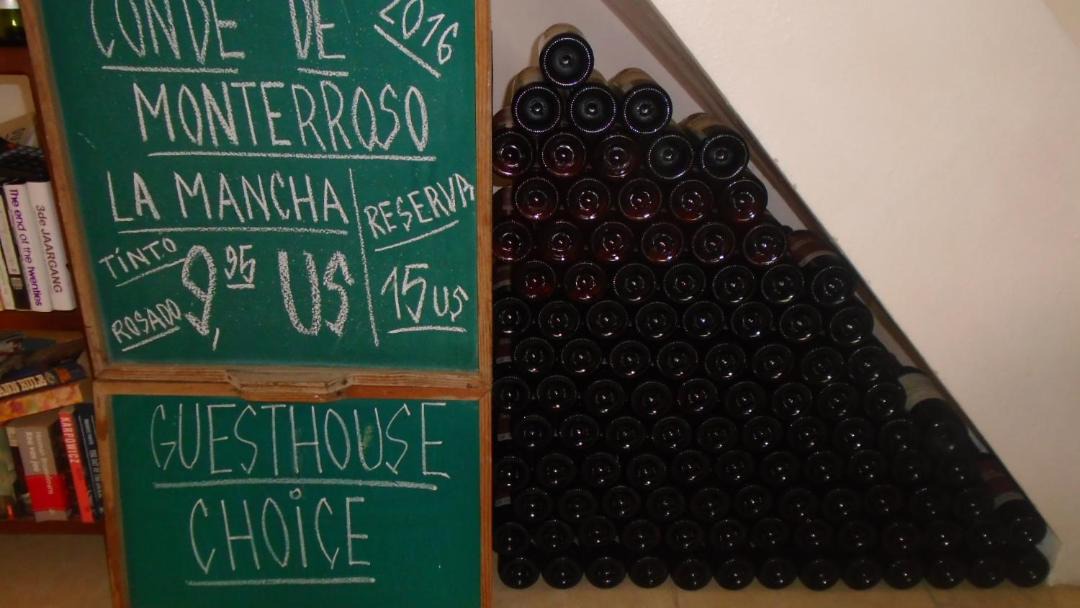 CONDE DE 2016
MONTERROSO
LA MANCHA
RESERVA
TINTO
9,95 US
15 US
ROSADO
GUESTHOUSE
CHOICE
The end of the twenties
3de JAARGANG
KARPOWICZ